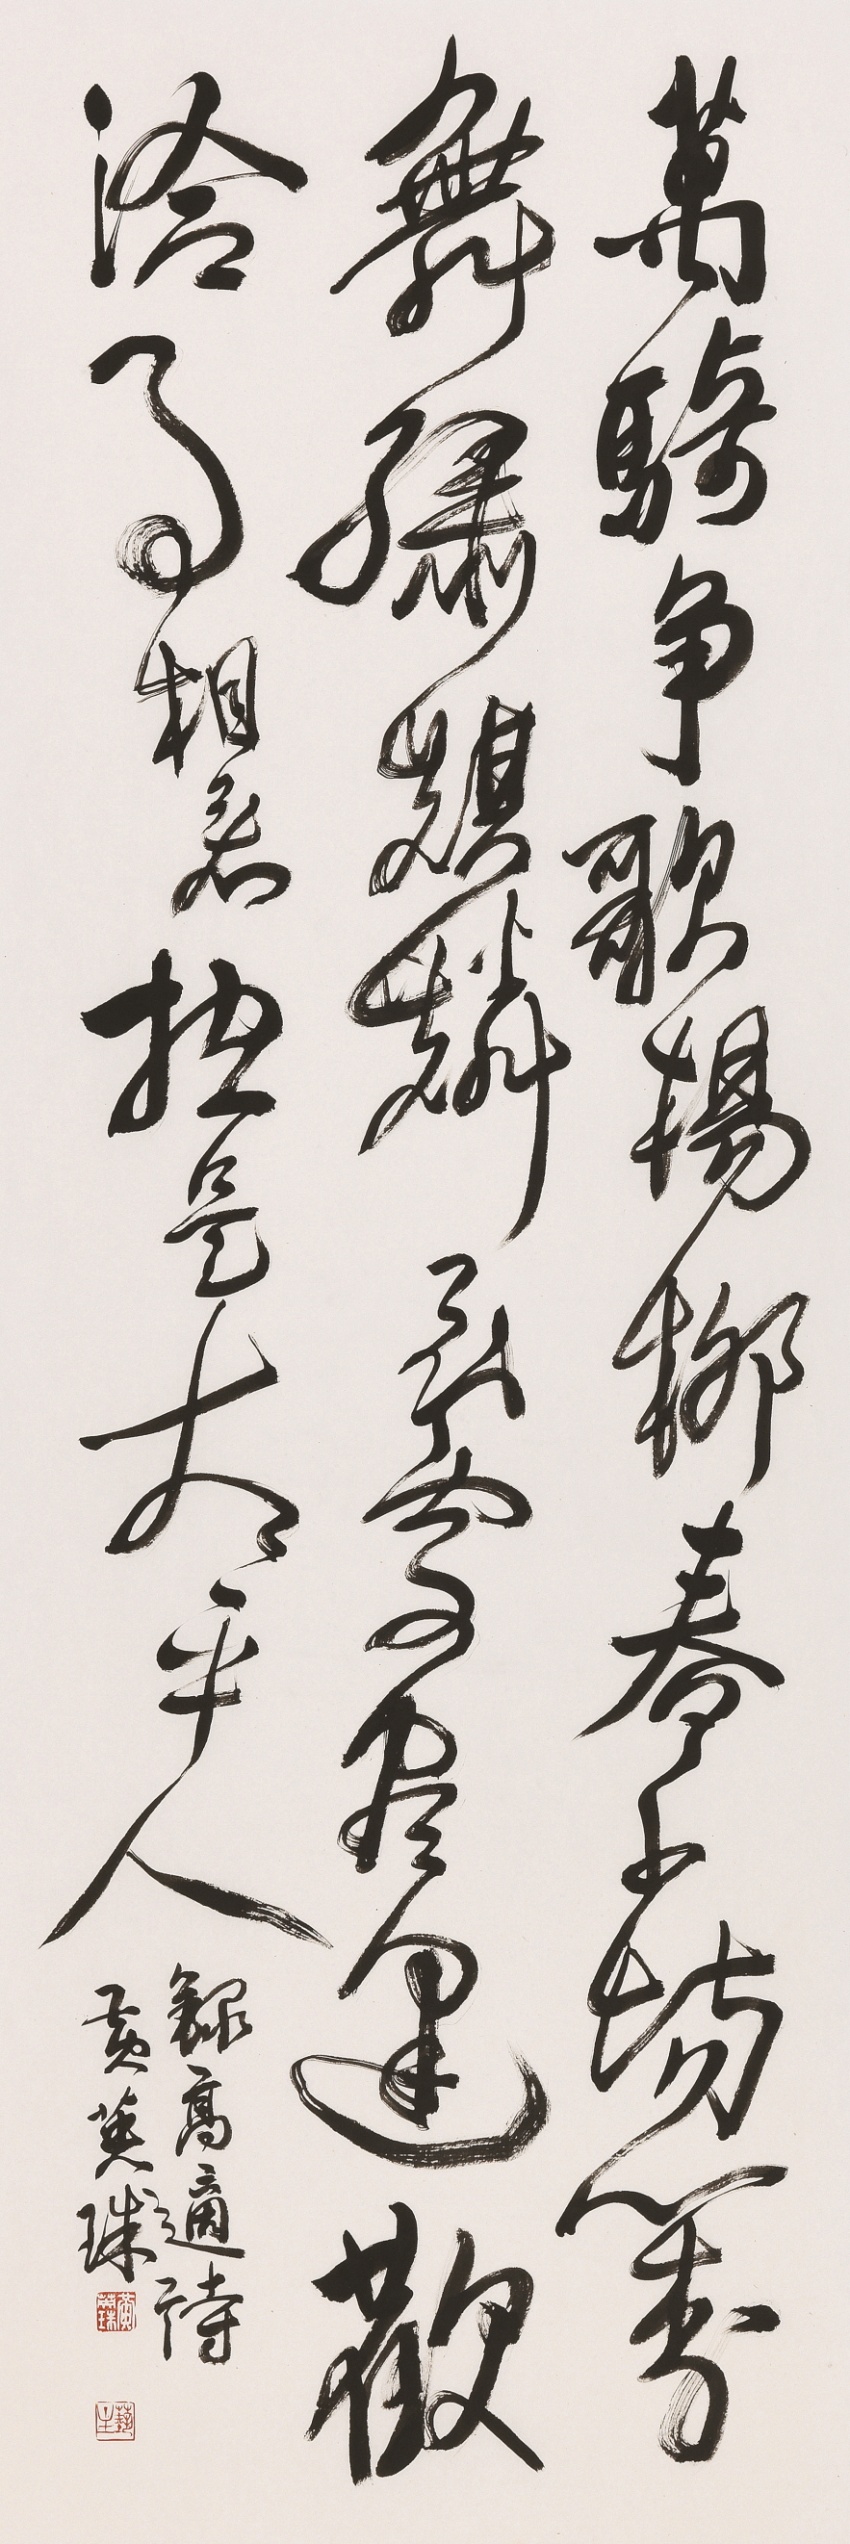 萬騎爭歌楊柳春千場對
舞繡麒麟到處盡逢歡
洽事相看總是太平人
錄高適詩
黃英珠